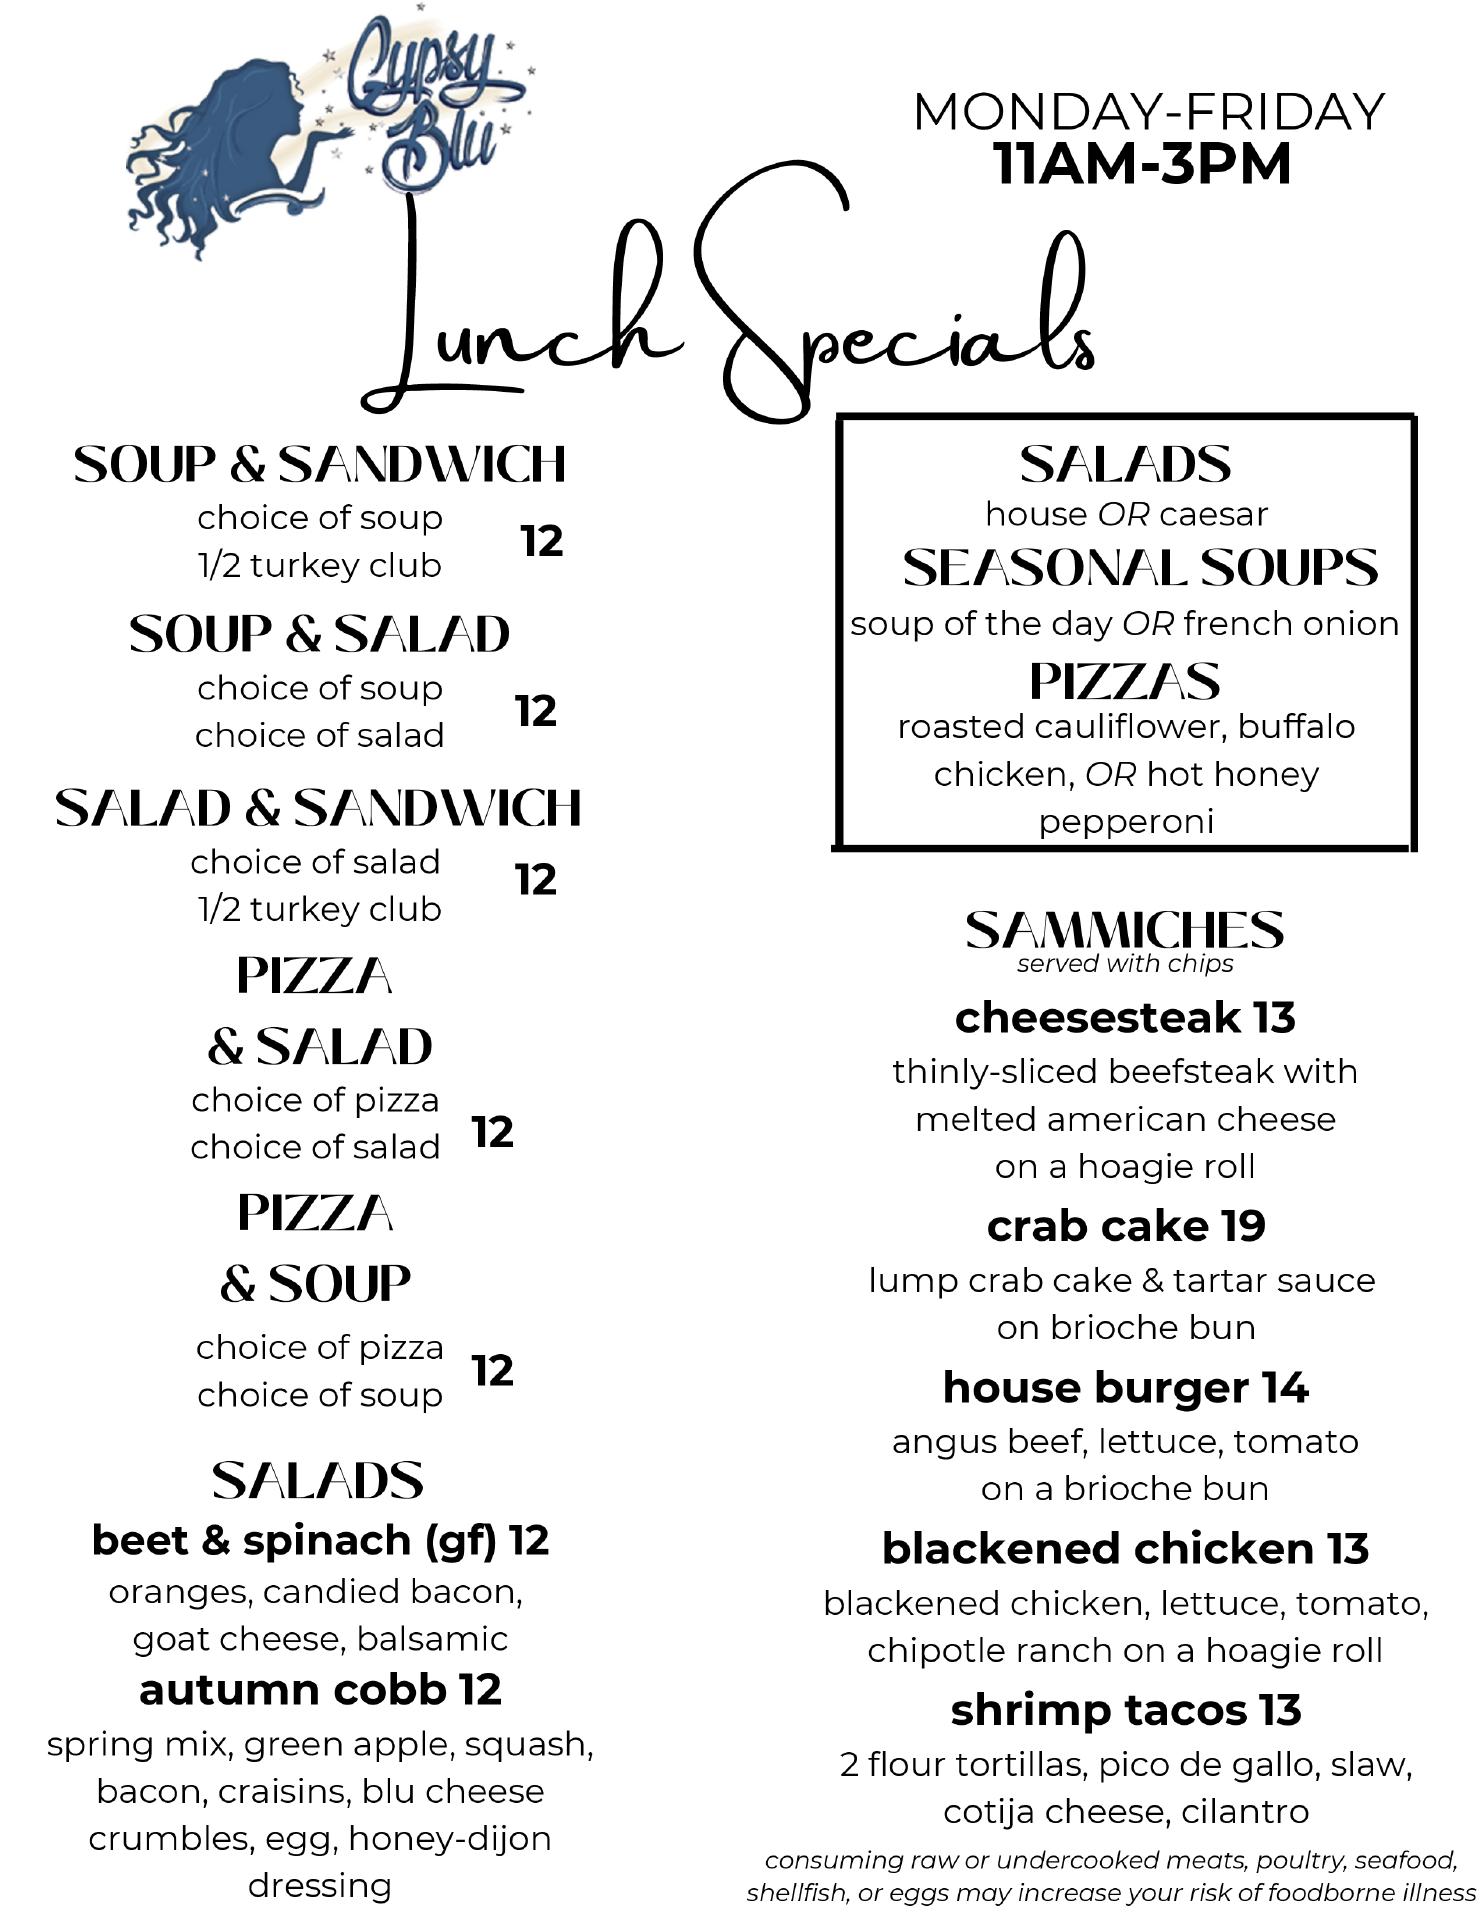 Gypsy
Blu
MONDAY-FRIDAY
11AM-3PM
Lunch Specials
SOUP & SANDWICH
choice of soup
1/2 turkey club
12
SOUP & SALAD
choice of soup
choice of salad
12
SALAD & SANDWICH
choice of salad
1/2 turkey club
12
PIZZA
& SALAD
choice of pizza
choice of salad
12
PIZZA
& SOUP
choice of pizza
choice of soup
12
SALADS
beet & spinach (gf) 12
oranges, candied bacon,
goat cheese, balsamic
autumn cobb 12
spring mix, green apple, squash,
bacon, craisins, blu cheese
crumbles, egg, honey-dijon
dressing
SALADS
house OR caesar
SEASONAL SOUPS
soup of the day OR french onion
PIZZAS
roasted cauliflower, buffalo
chicken, OR hot honey
pepperoni
SAMMICHES
served with chips
cheesesteak 13
thinly-sliced beefsteak with
melted american cheese
on a hoagie roll
crab cake 19
lump crab cake & tartar sauce
on brioche bun
house burger 14
angus beef, lettuce, tomato
on a brioche bun
blackened chicken 13
blackened chicken, lettuce, tomato,
chipotle ranch on a hoagie roll
shrimp tacos 13
2 flour tortillas, pico de gallo, slaw,
cotija cheese, cilantro
consuming raw or undercooked meats, poultry, seafood,
shellfish, or eggs may increase your risk of foodborne illness